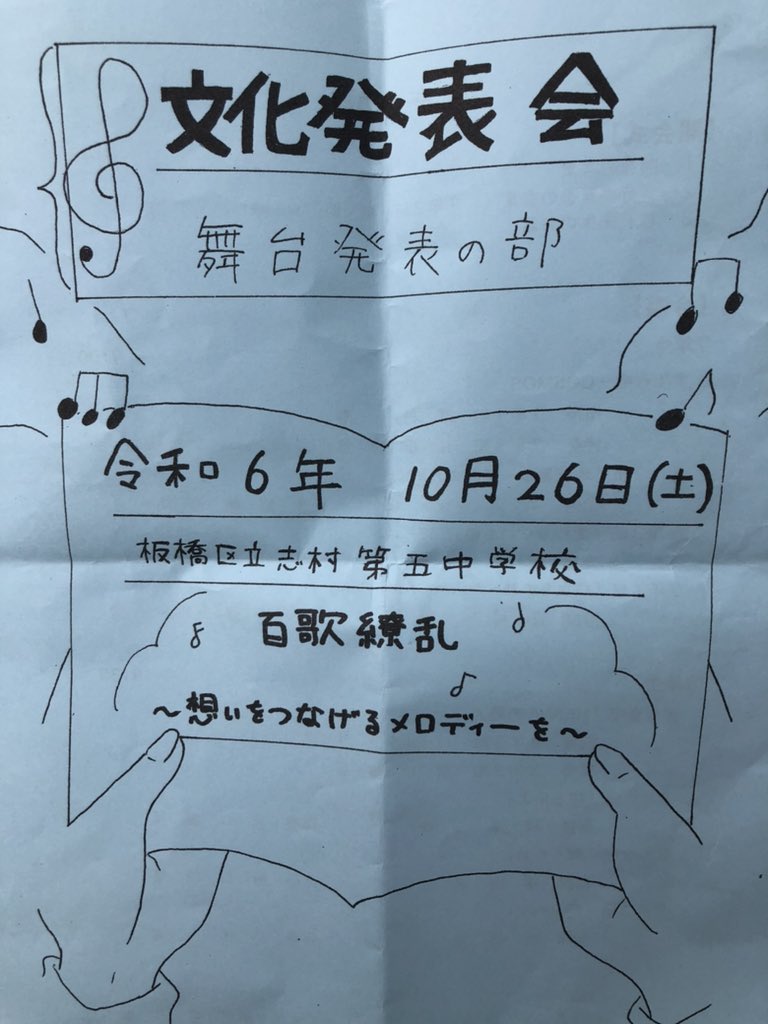 文化発表会
舞台発表の部
令和6年 10月26日(土)
板橋区立志村第五中学校
百歌繚乱
～想いをつなげるメロディーを～